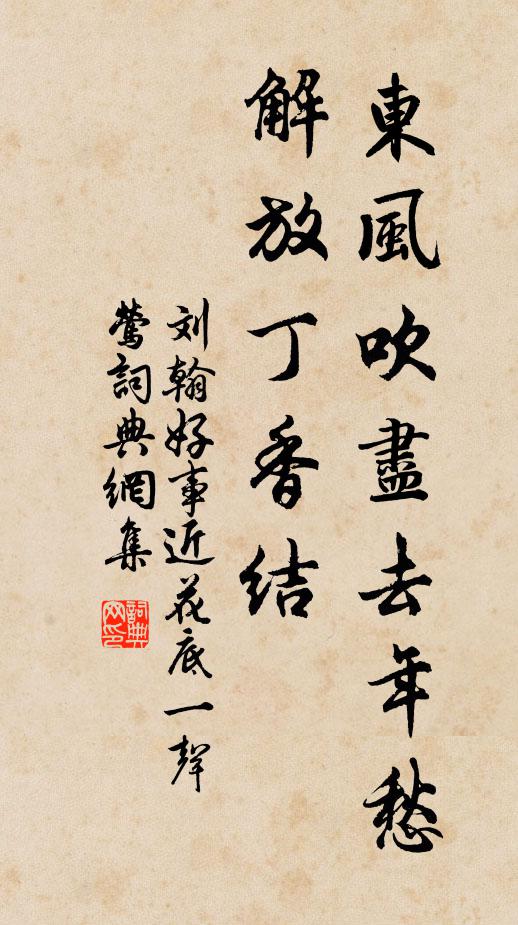 東風吹盡去年愁
解放丁香结
刘翰好事近花底一聲
鶯詞典網集
詞典网印